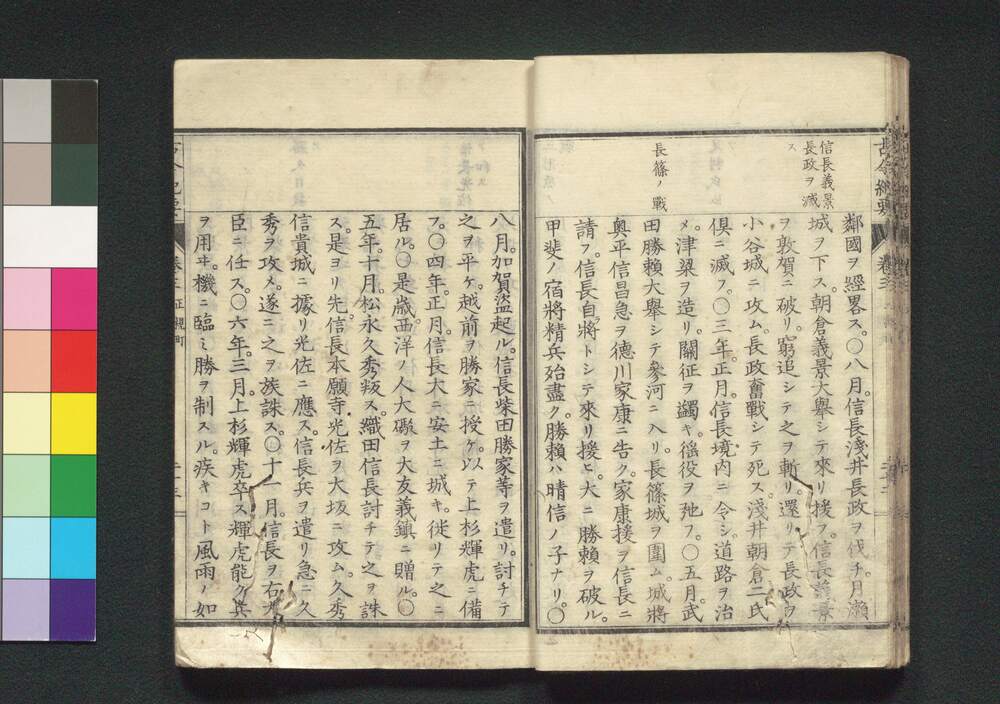 古今紀要
卷三
信長義景
長政ヲ滅
ス
長篠ノ戰
鄰國ヲ經畧ス。〇八月。信長淺井長政ヲ伐チ。月瀨
城ヲ下ス。朝倉義景大舉シテ來リ援フ。信長義景
ヲ敦賀ニ破リ。窮追シテ之ヲ斬リ。還リテ長政ヲ
小谷城ニ攻ム。長政奮戰シテ死ス。淺井朝倉二氏
倶ニ滅フ。〇三年。正月。信長境内ニ令シ。道路ヲ治
メ。津梁ヲ造リ。關征ヲ蠲キ。徭役ヲ弛フ。〇五月。武
田勝賴大舉シテ參河ニ入リ。長篠城ヲ圍ム。城將
奥平信昌急ヲ德川家康ニ告ク。家康援ヲ信長ニ
請フ。信長自將トシテ來リ援ヒ。大ニ勝賴ヲ破ル。
甲斐ノ宿將精兵殆盡ク。勝賴ハ晴信ノ子ナリ。〇
八月。加賀盜起ル。信長柴田勝家等ヲ遣リ。討チテ
之ヲ平ケ。越前ヲ勝家ニ授ケ。以テ上杉輝虎ニ備
フ。〇四年。正月。信長大ニ安土ニ城キ。徙リテ之ニ
居ル。〇是歲西洋ノ人大礮ヲ大友義鎮ニ贈ル。〇
五年。十月。松永久秀叛ス。織田信長討チテ之ヲ誅
ス。是ヨリ先。信長本願寺光佐ヲ大坂ニ攻ム。久秀
信貴城ニ據リ光佐ニ應ス。信長兵ヲ遣リ急ニ久
秀ヲ攻メ。遂ニ之ヲ族誅ス。〇十一月。信長ヲ右大
臣ニ任ス。〇六年。三月。上杉輝虎卒ス。輝虎能ク兵
ヲ用ヰ。機ニ臨ミ勝ヲ制スル。疾キコト風雨ノ如